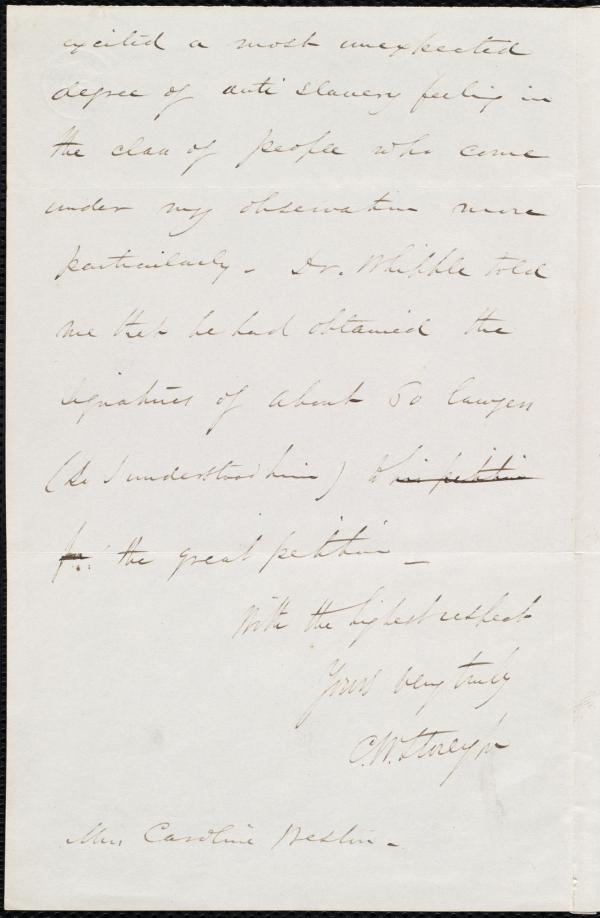 excited a most unexpected
degree of anti slavery feeling in
the class of people who come
under my observation more
particularly. Dr. Whipple told
me that he had obtained the
signatures of about 50 lawyers
(so I understood him) to his petition
for the great petition _
With the highest respect
Yours very truly
C. W. Storey Jr
Miss Caroline Weston _